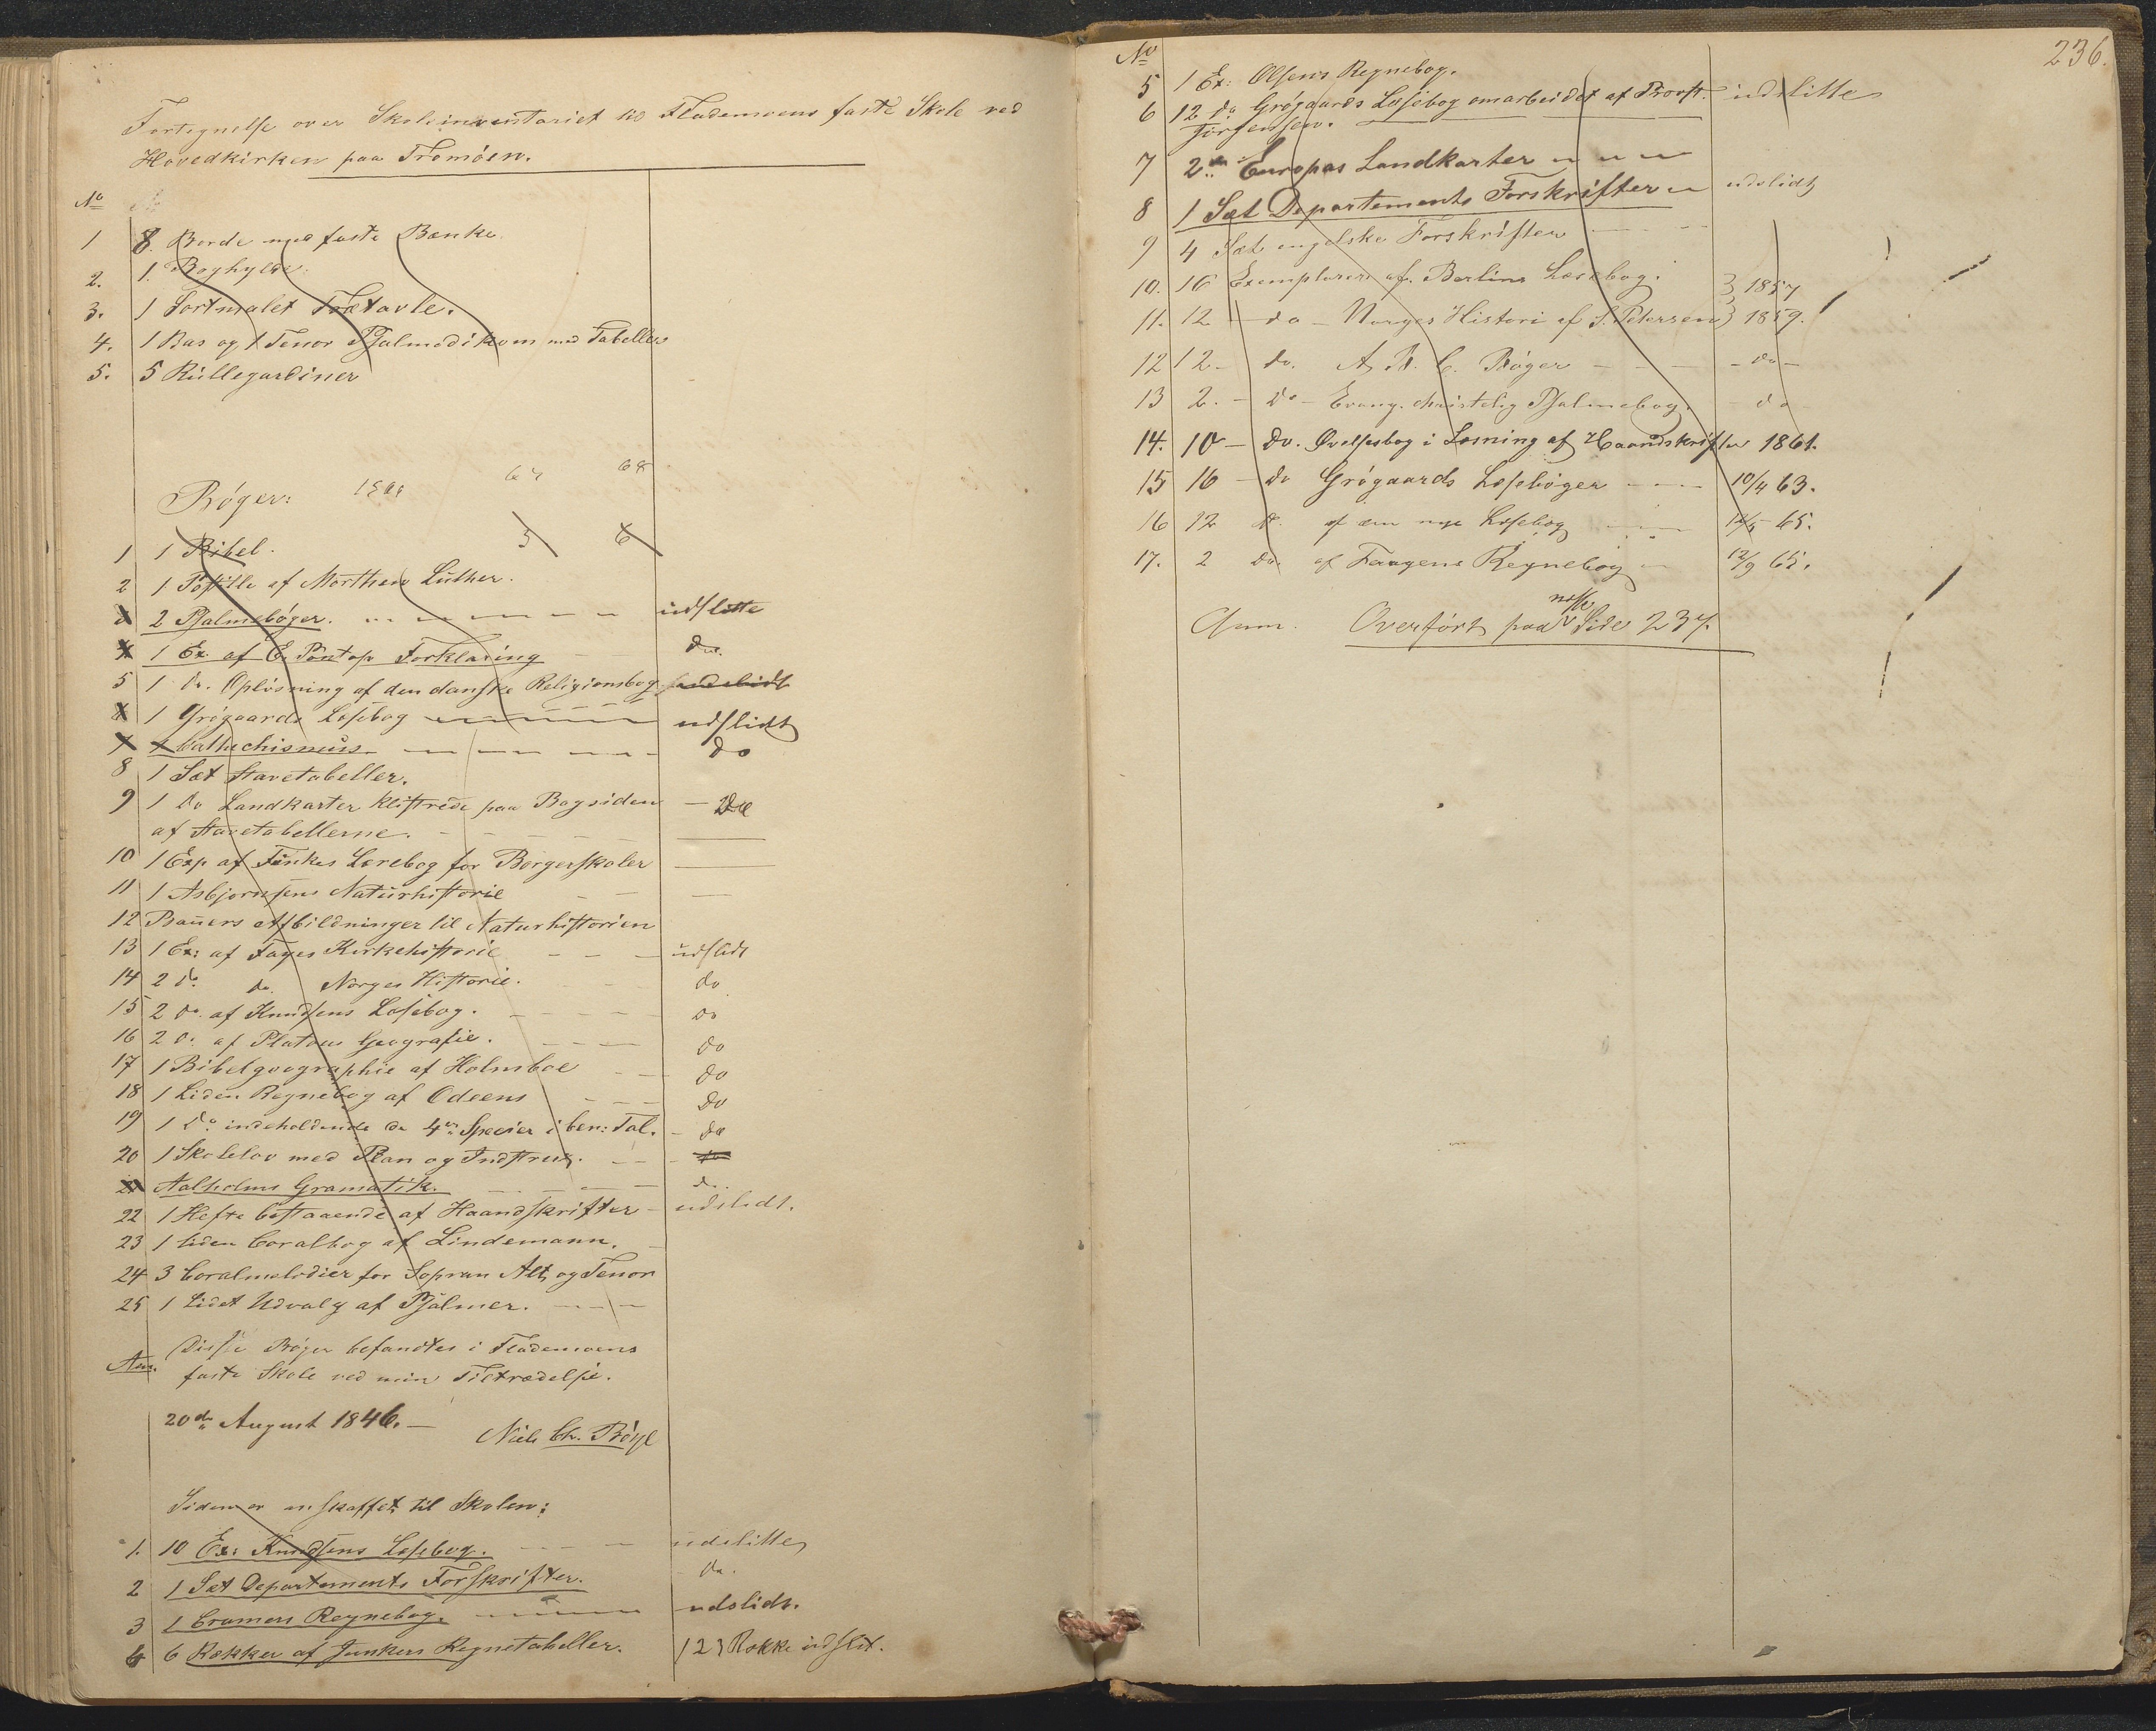 Fortegnelse over Skoleinventariet ved Flademoens faste Skole ved
Hovedkirken paa Tromöen.
No
1 8. Borde med faste Bænke
2. 1. Boghylde.
3. 1 Sortmalet Trætavle.
4. 1 Bas og 1 Tenor Psalmedikon med Tabeller
5. 5 Rüllegardiner
Bøger: 67 68
1 1 Bibel. 5 6
2 1 Postille af Morthen Luther.
3 2 Psalmebøger. udslitte
4 1 Ex. af E. Pontop Forklaring do.
5 1 do. Oplösning af den danske Religionsbog udslidt
6 1 Grögaards Læsebog udslidt
7 1 Cathechismus do
8 1 Sæt Stavetabeller.
9 1 do Landkarter klistrede paa Bagsiden - do
af Stavetabellerne.
10 1 Exp af Funkes Lærebog for Borgerskoler
11 1 Asbjørnsens Naturhistorie
12 Bauers Afbildninger til Naturhistorien
13 1 Ex: af Fayes Kirkehistorie udslidt
14 2 do do. Norges Historie. do
15 2 do. af Knudsens Læsebog. do
16 2 do. af Platous Geografie. do
17 1 Bibelgeographie af Holmboe do
18 1 Liden Regnebog af Odeens do
19 1 do indeholdende de 4re Specier i ben: Tal. - do
20 1 Skolelov med Plan og Indstrux. do
21 Aalholms Gramatik. do.
22 1 Hefte bestaaende af Haandskrifter - udslidt.
23 1 liden Coralbog af Lindemann.
24 3 Coralmelodier for Sopran Alt og Tenor
25 1 Lidet Udvalg af Psalmer.
Disse Bøger befandtes i Flademoens
Anm. faste Skole ved min Tiltrædelse.
20de August 1846. -
Niels Ch. Böye
Siden er anskaffet til Skolen:
1. 10 Ex: Knudsens Læsebog. udslitte
2 1 Sæt Departements Forskrifter. do.
3 1 Cramers Regnebog. udslidt.
4 6 Rækker af Junkers Regnetabeller. 1 2 3 Række udslit.
236.
No
5 1 Ex: Olsens Regnebog.
6 12 do Grögaards Læsebog omarbeidet af Provst. udslitte
Jörgensen.
7 2 Europas Landkarter
8 1 Sæt Departements Forskrifter udslidt
9 4 Sæt engelske Forskrifter
10. 16 Exemplarer af Berlins Læsebog. } 1857
11. 12 - do - Norges Histori af S. Petersen } 1859.
12 12 - do. A. B. C. Bøger - do -
13 2. - do - Evang. christelig Psalmebog. - do
14. 10 - do. Øvelsesbog i Læsning af Haandskrifter 1861.
15 16 - do Grögaards Læsebøger 10/4 63.
16 12 do. af den nye Læsebog 12/5 65.
17. 2 do. af Faagens Regnebog 12/9 65.
Anm. Overført paa næste Side 237.